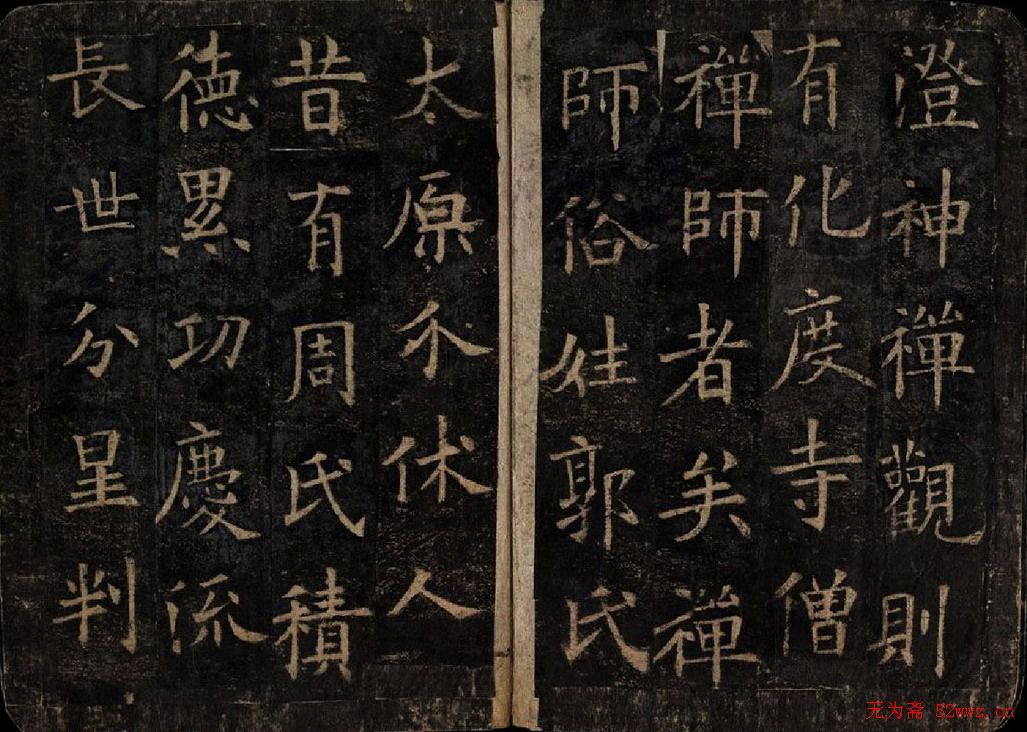 澄神禪觀則
有化度寺僧
禪師者矣禪
師俗姓郭氏
太原介休人
昔有周氏積
德累功慶流
長世分星判
无为斋 52wwz.cn